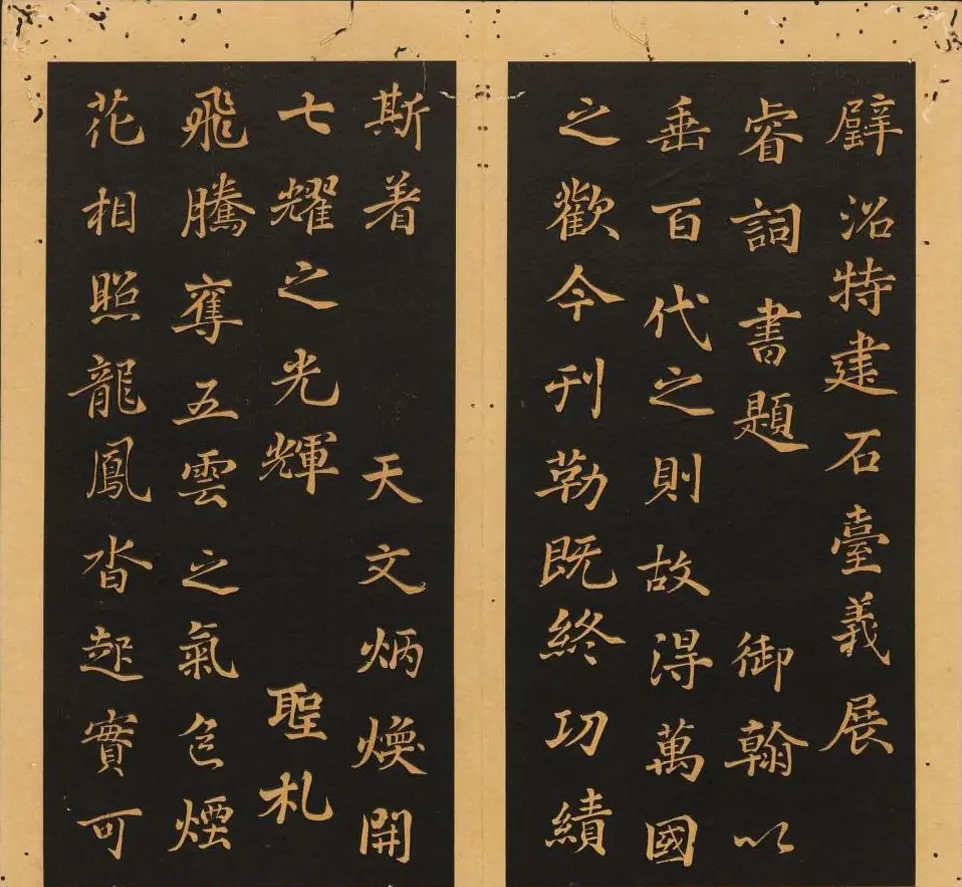 躃沿特建石臺義展
睿詞書題御翰以
垂百代之則故得萬國
之歡今刊勒既終功績
斯着天文炳煥開
七耀之光輝聖札
飛騰奪五雲之氣色煙
花相照龍鳳沓起實可